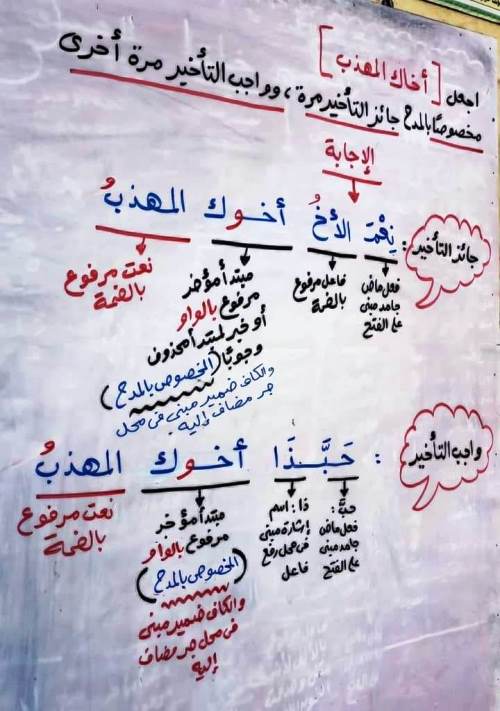 اجعل [أخاك المهذب]
مخصوصًا بالمدح جائز التأخير مرة، وواجب التأخير مرة أخرى
الإجابة
جائز التأخير :
نِعْمَ الأخُ أخوك المهذبُ
فعل ماض
جامد مبنى
على الفتح
فاعل مرفوع
بالضمة
مبتدأ مؤخر
مرفوع بالواو
أو خبر لمبتدأ محذوف
وجوبًا (المخصوص بالمدح)
والكاف ضمير مبنى فى محل
جر مضاف إليه
نعت مرفوع
بالضمة
واجب التأخير :
حَبَّذَا أخوك المهذبُ
حبَّ :
فعل ماض
جامد مبنى
على الفتح
ذا : اسم
إشارة مبنى
فى محل رفع
فاعل
مبتدأ مؤخر
مرفوع بالواو
(المخصوص بالمدح)
والكاف ضمير مبنى
فى محل جر مضاف
إليه
نعت مرفوع
بالضمة